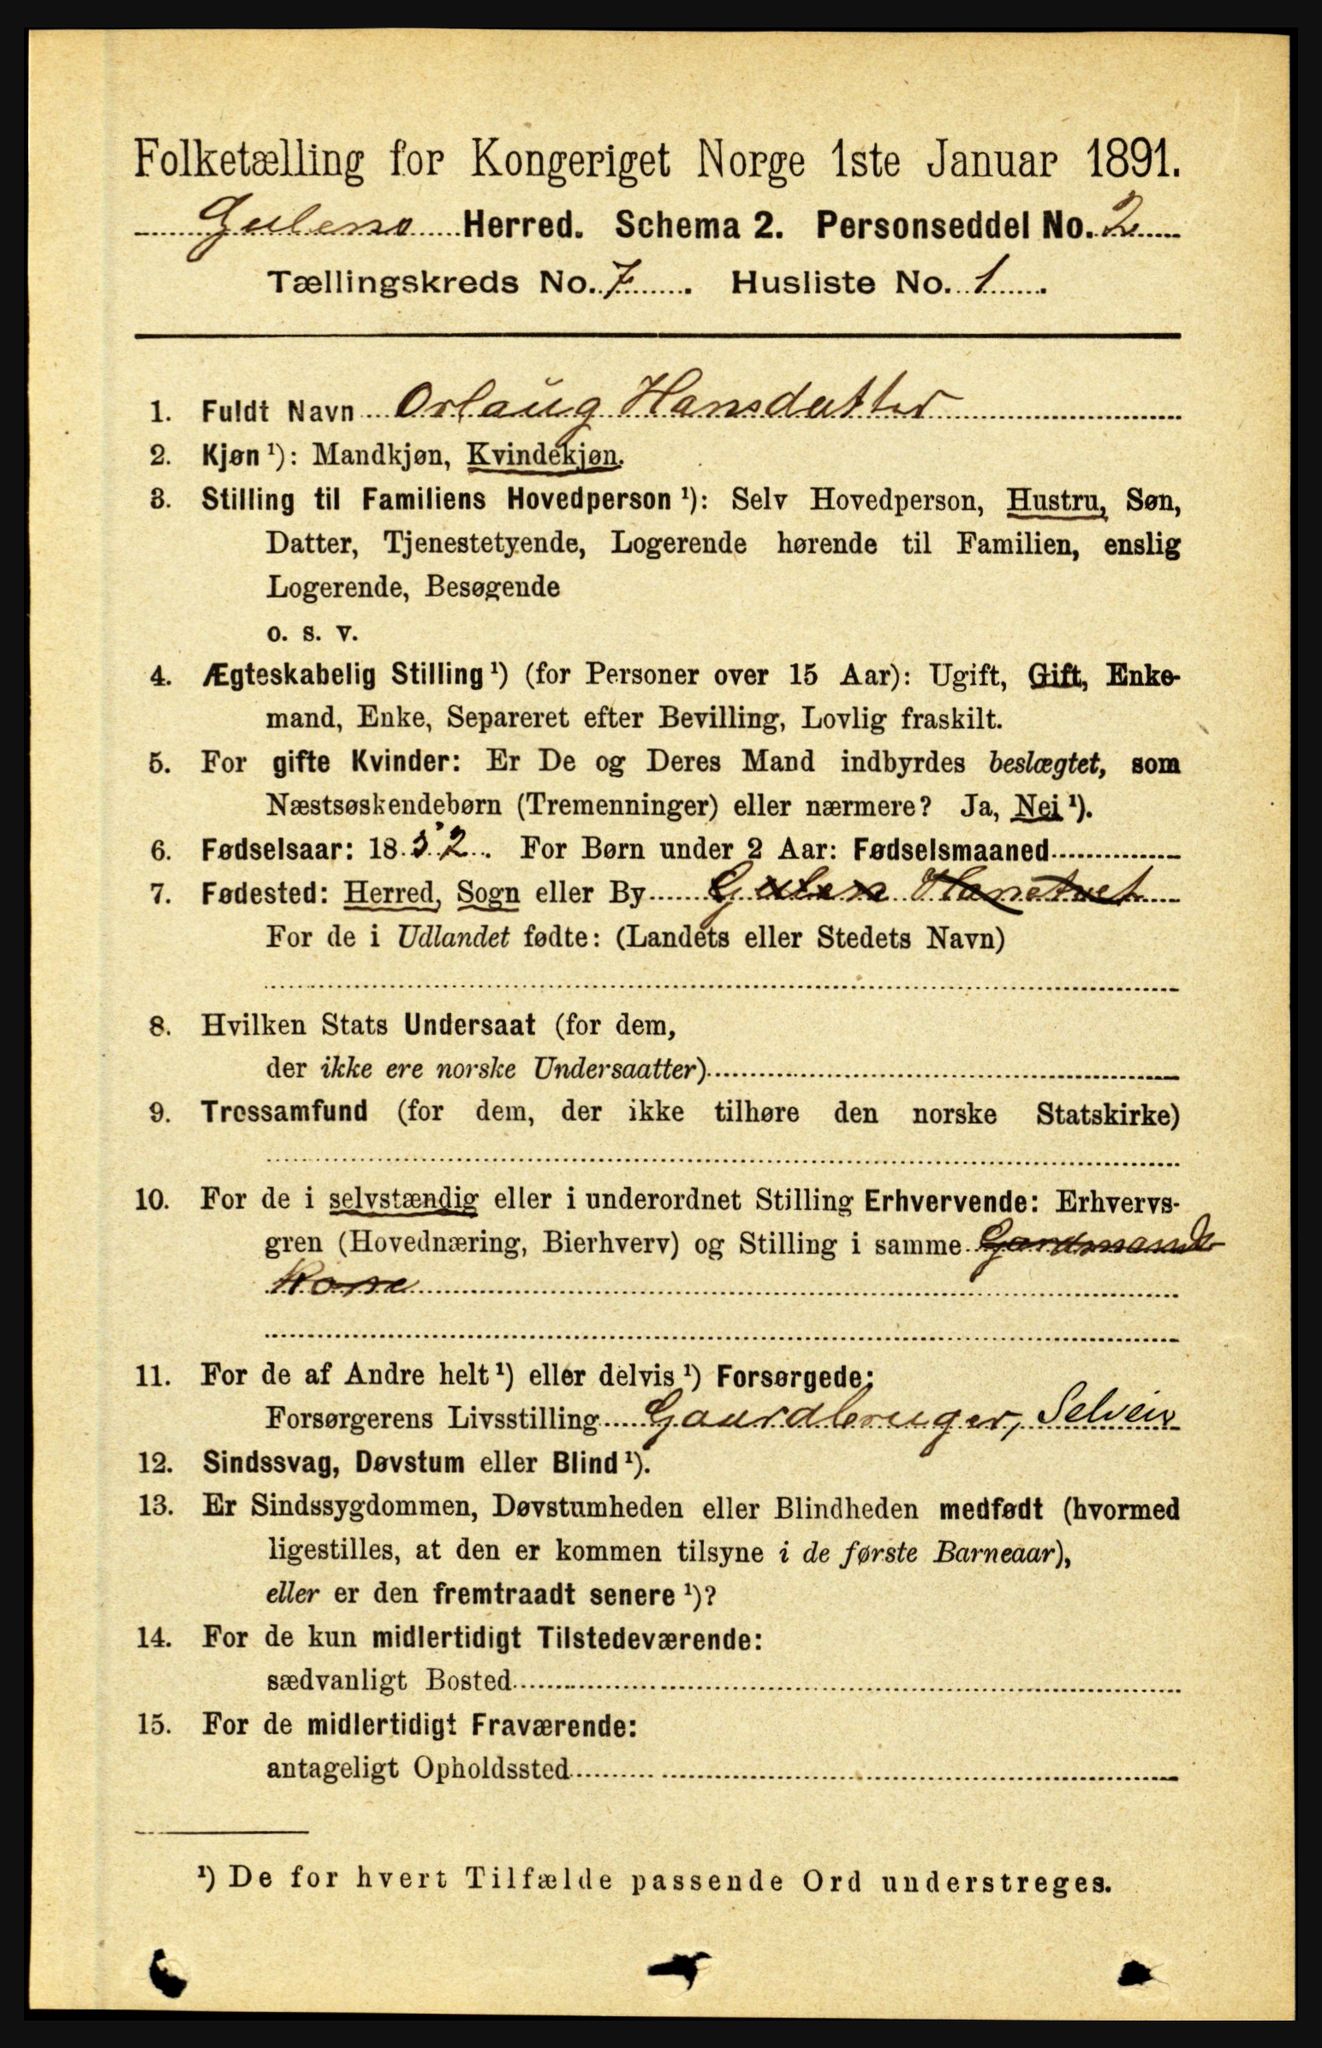 Folketælling for Kongeriget Norge 1ste Januar 1891.
Gulens Herred. Schema 2. Personseddel No. 2
Tællingskreds No. 7. Husliste No. 1.
1. Fuldt Navn Orlaug Hansdatter
2. Kjøn¹): Mandkjøn, Kvindekjøn.
3. Stilling til Familiens Hovedperson¹): Selv Hovedperson, Hustru, Søn,
Datter, Tjenestetyende, Logerende hørende til Familien, enslig
Logerende, Besøgende
o. s. v.
4. Ægteskabelig Stilling¹) (for Personer over 15 Aar): Ugift, Gift, Enke-
mand, Enke, Separeret efter Bevilling, Lovlig fraskilt.
5. For gifte Kvinder: Er De og Deres Mand indbyrdes beslægtet, som
Næstsøskendebørn (Tremenninger) eller nærmere? Ja, Nei¹).
6. Fødselsaar: 1832. For Børn under 2 Aar: Fødselsmaaned
7. Fødested: Herred, Sogn eller By Gulen
For de i Udlandet fødte: (Landets eller Stedets Navn)
8. Hvilken Stats Undersaat (for dem,
der ikke ere norske Undersaatter)
9. Trossamfund (for dem, der ikke tilhøre den norske Statskirke)
10. For de i selvstændig eller i underordnet Stilling Erhvervende: Erhvervs-
gren (Hovednæring, Bierhverv) og Stilling i samme Gardmands
Kone
11. For de af Andre helt¹) eller delvis¹) Forsørgede:
Forsørgerens Livsstilling Gaardbruger, Selveier
12. Sindssvag, Døvstum eller Blind¹).
13. Er Sindssygdommen, Døvstumheden eller Blindheden medfødt (hvormed
ligestilles, at den er kommen tilsyne i de første Barneaar),
eller er den fremtraadt senere¹)?
14. For de kun midlertidigt Tilstedeværende:
sædvanligt Bosted
15. For de midlertidigt Fraværende:
antageligt Opholdssted
¹) De for hvert Tilfælde passende Ord understreges.